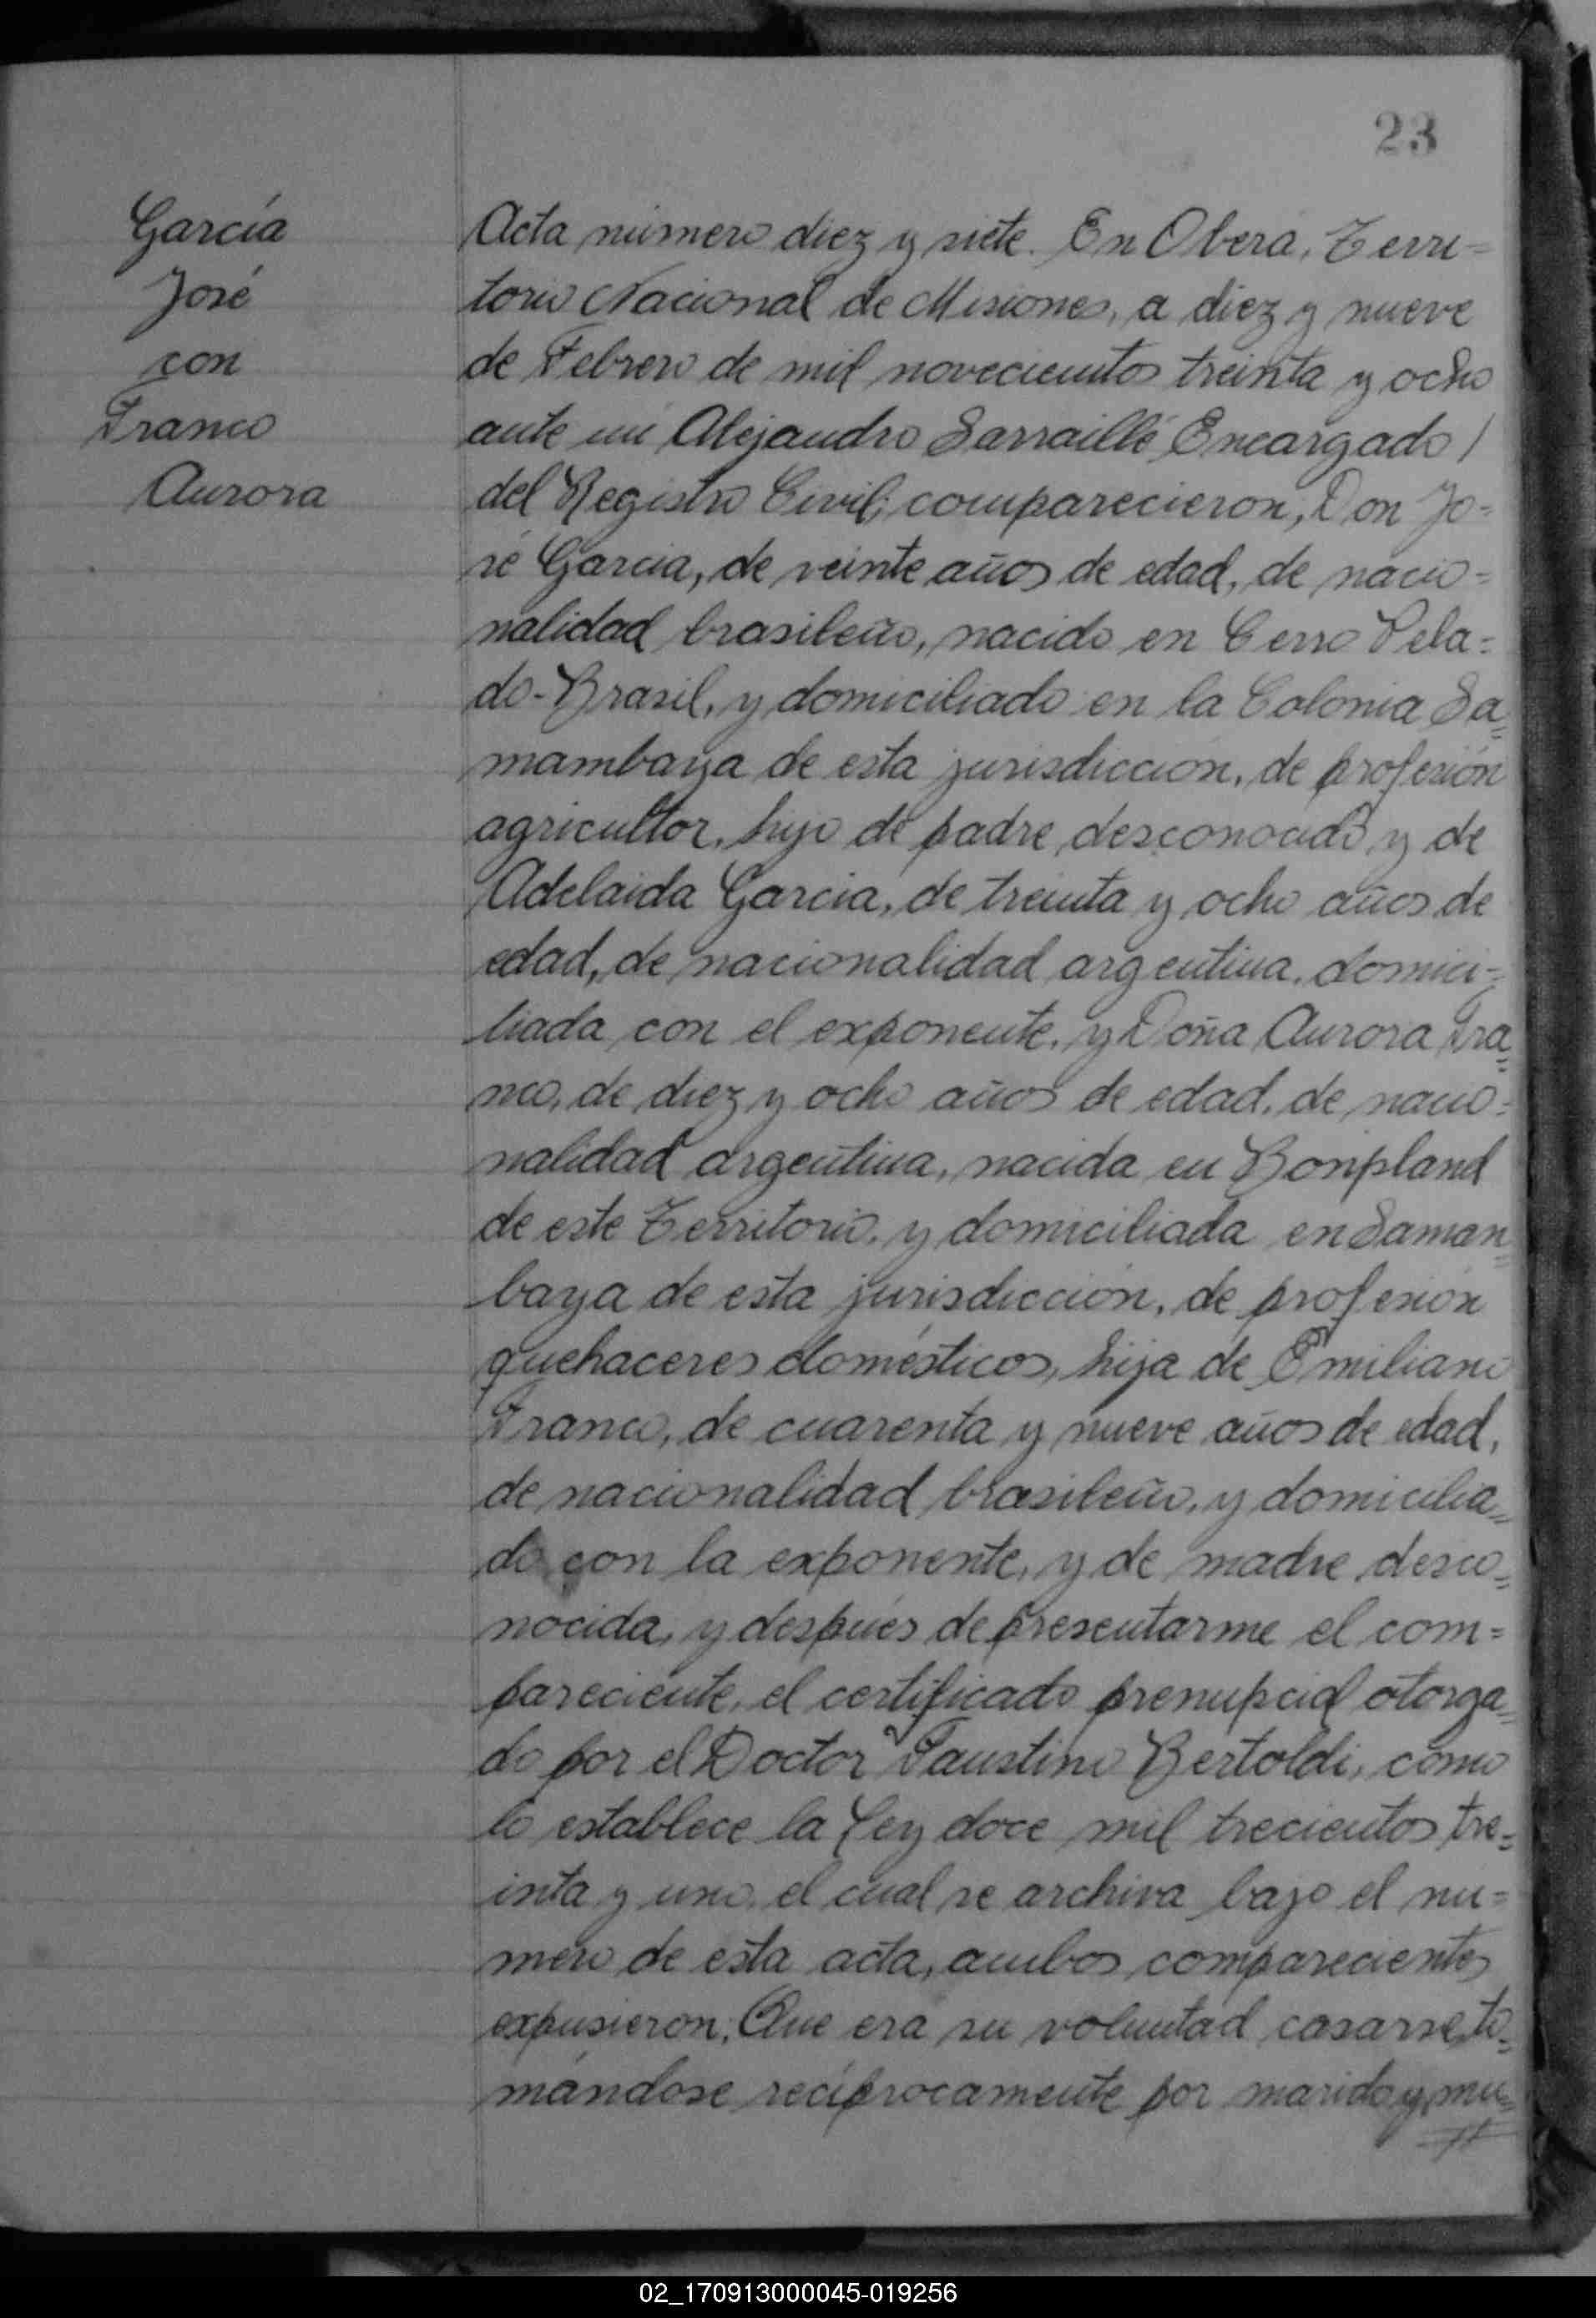 23
García
José
con
Franco
Aurora
Acta número diez y siete. En Obera, Terri=
torio Nacional de Misiones, a diez y nueve
de Febrero de mil novecientos treinta y ocho
ante mi Alejandro Sarraillé Encargado /
del Registro Civil; comparecieron, Don Jo=
sé Garcia, de veinte años de edad, de nacio=
nalidad brasileño, nacido en Cerro Pela=
do-Brasil, y domiciliado en la Colonia Sa=
mambaya de esta jurisdicción, de profesión
agricultor, hijo de padre desconocido y de
Adelaida Garcia, de treinta y ocho años de
edad, de nacionalidad argentina, domici=
liada con el exponente, y Doña Aurora Fra=
nco, de diez y ocho años de edad, de nacio=
nalidad argentina, nacida en Bonpland
de este Territorio, y domiciliada en Saman=
baya de esta jurisdicción, de profesión
quehaceres domésticos, hija de Emiliano
Franco, de cuarenta y nueve años de edad,
de nacionalidad brasileño, y domicilia=
do con la exponente, y de madre desco=
nocida, y despúes de presentarme el com=
pareciente, el certificado prenupcial otorga=
do por el Doctor Faustino Bertoldi, como
lo establece la Ley doce mil trecientos tre=
inta y uno, el cual se archiva bajo el nu=
mero de esta acta, ambos comparecientes
expusieron; Que era su voluntad casarse, to=
mándose recíprocamente por marido y mu=
02_170913000045-019256